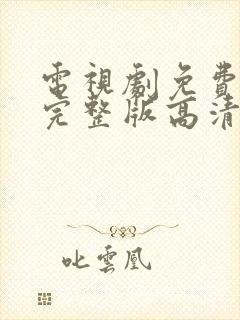 電視劇免費
完整版高清
叱雲凰